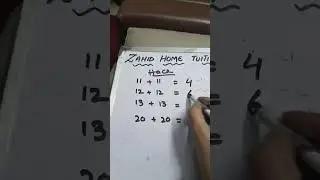 ZAHID HOME TUITI
Hack
11 + 11 = 4
12 + 12 = 6
13 + 13 =
20 + 20 =